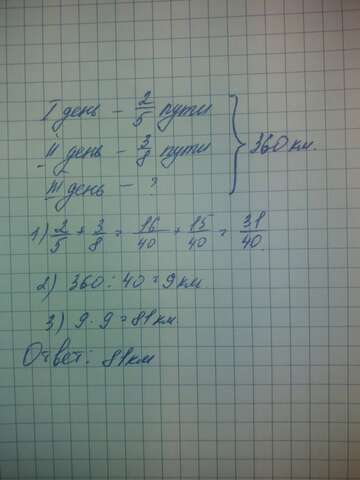 I день – 2/5 пути
II день – 3/8 пути } 360 км.
III день – ?
1) 2/5 + 3/8 = 16/40 + 15/40 = 31/40
2) 360 : 40 = 9 км
3) 9 · 9 = 81 км.
Ответ: 81 км